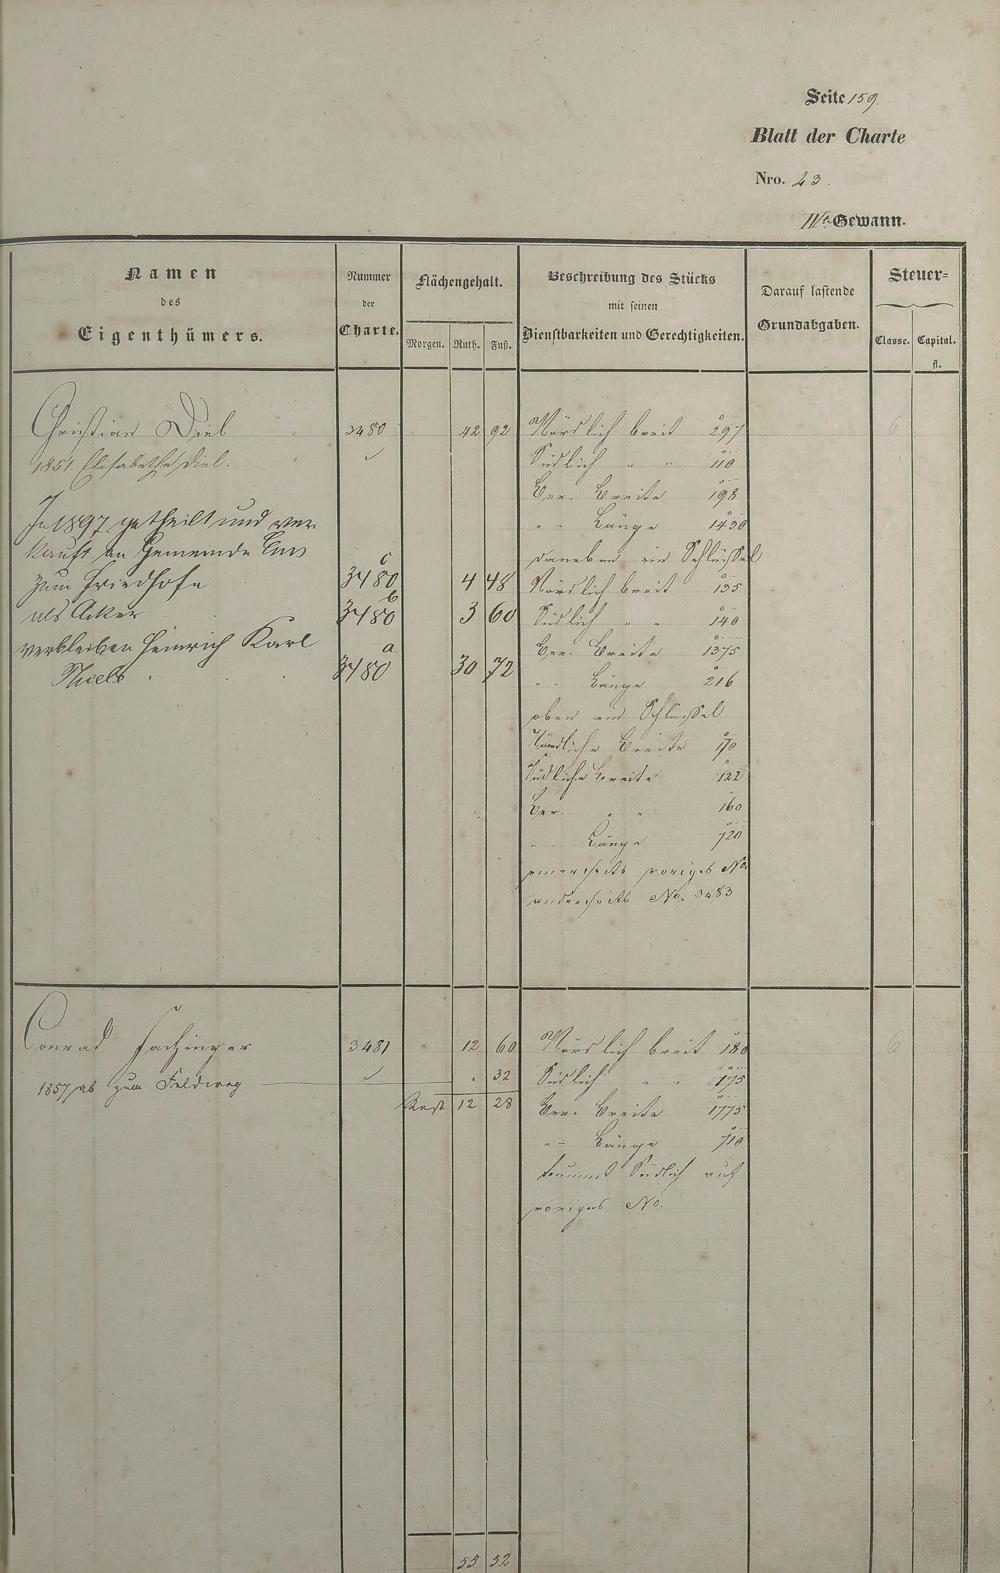 Seite 159.
Blatt der Charte
Nro. 43.
IVte Gewann.
Namen
des
Eigenthümers.
Nummer
der
Charte.
Flächengehalt.
Morgen. Ruth. Fuß.
Beschreibung des Stücks
mit seinen
Dienstbarkeiten und Gerechtigkeiten.
Darauf lastende
Grundabgaben.
Steuer=
Classe. Capital.
fl.
Christian Diel 3480 42 92 Nördlich breit 297 6
1851. Elisabetha Diel. Südlich " " 110
Ver. Breite 198
In 1897 getheilt und ver " " Länge 1430
kauft an Gemeinde Ems daneben ein Schlüssel
zum Friedhofe 3480 c 4 48 Nördlich breit 135
als Acker 3480 b 3 60 Südlich " " 140
verbleiben Heinrich Karl Ver. Breite 1375
3480 a 30 72 " " Länge 216
oben ein Schlüssel
Nördliche Breite 170
Südliche Breite 122
Ver. " " 160
" Länge 720
einerseits voriges No.
anderseits No. 3483
Conrad Fachinger 3481 12 60 Nördlich breit 180 6
1857 ab zum Feldweg . 32 Südlich " " 175
Rest 12 28 Ver. Breite 1775
" " Länge 710
Südlich auf
voriges No.
55 52